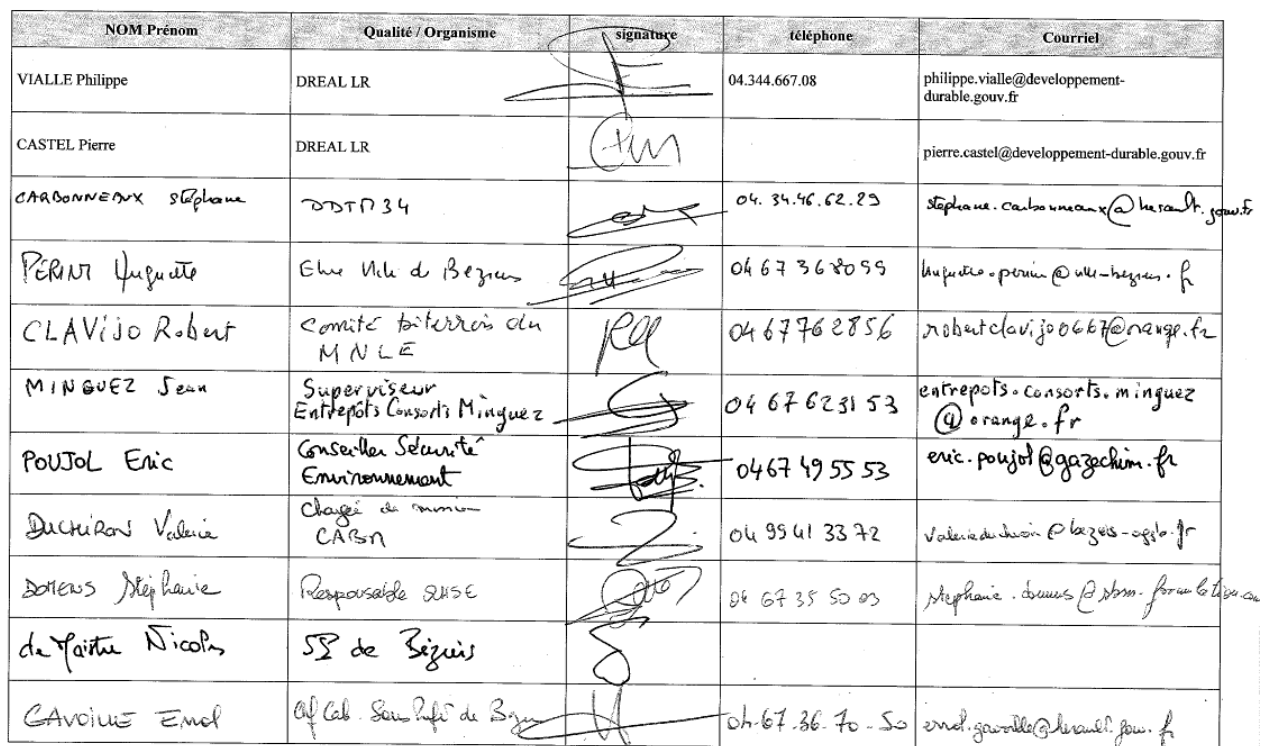 NOM Prénom Qualité / Organisme signature téléphone Courriel
VIALLE Philippe DREAL LR 04.344.667.08 philippe.vialle@developpement-
durable.gouv.fr
CASTEL Pierre DREAL LR pierre.castel@developpement-durable.gouv.fr
CARBONNEAUX Stéphane DDTM34 04.34.46.62.29 stephane.carbonneaux@herault.gouv.fr
PÉRINI Huguette Elue Ville de Béziers 04 67 36 80 99 @ville-beziers.fr
CLAVIJO Robert Comité biterrois du 04 67 76 28 56 robertclavijo0667@orange.fr
MNLE
MINGUEZ Jean Superviseur 04 67 62 31 53 entrepots.consorts.minguez
Entrepôts Consorts Minguez @orange.fr
POUJOL Eric Conseiller Sécurité 0467 49 55 53 eric.poujol@gazechim.fr
Environnement
DUCHIRON Valérie Chargée de mission 04 99 41 33 72
CABM
DOMENS Stéphanie Responsable QHSE 04 67 35 50 03
de Maistre Nicolas SP de Béziers
GAVOILLE Errol Cab. Sous Préfet de 04.67.36.70.50 errol.gavoille@herault.gouv.fr